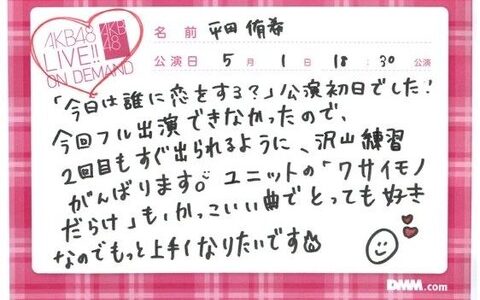 AKB48
LIVE!!
ON DEMAND
AKB
48
名前 平田侑希
公演日 5月1日 18:30公演
「今日は誰に恋をする?」公演初日でした!
今回フル出演できなかったので、
2回目もすぐ出られるように、沢山練習
がんばります。ユニットの「クサイモノ
だらけ」も、かっこいい曲でとっても好き
なのでもっと上手くなりたいです
DMM.com